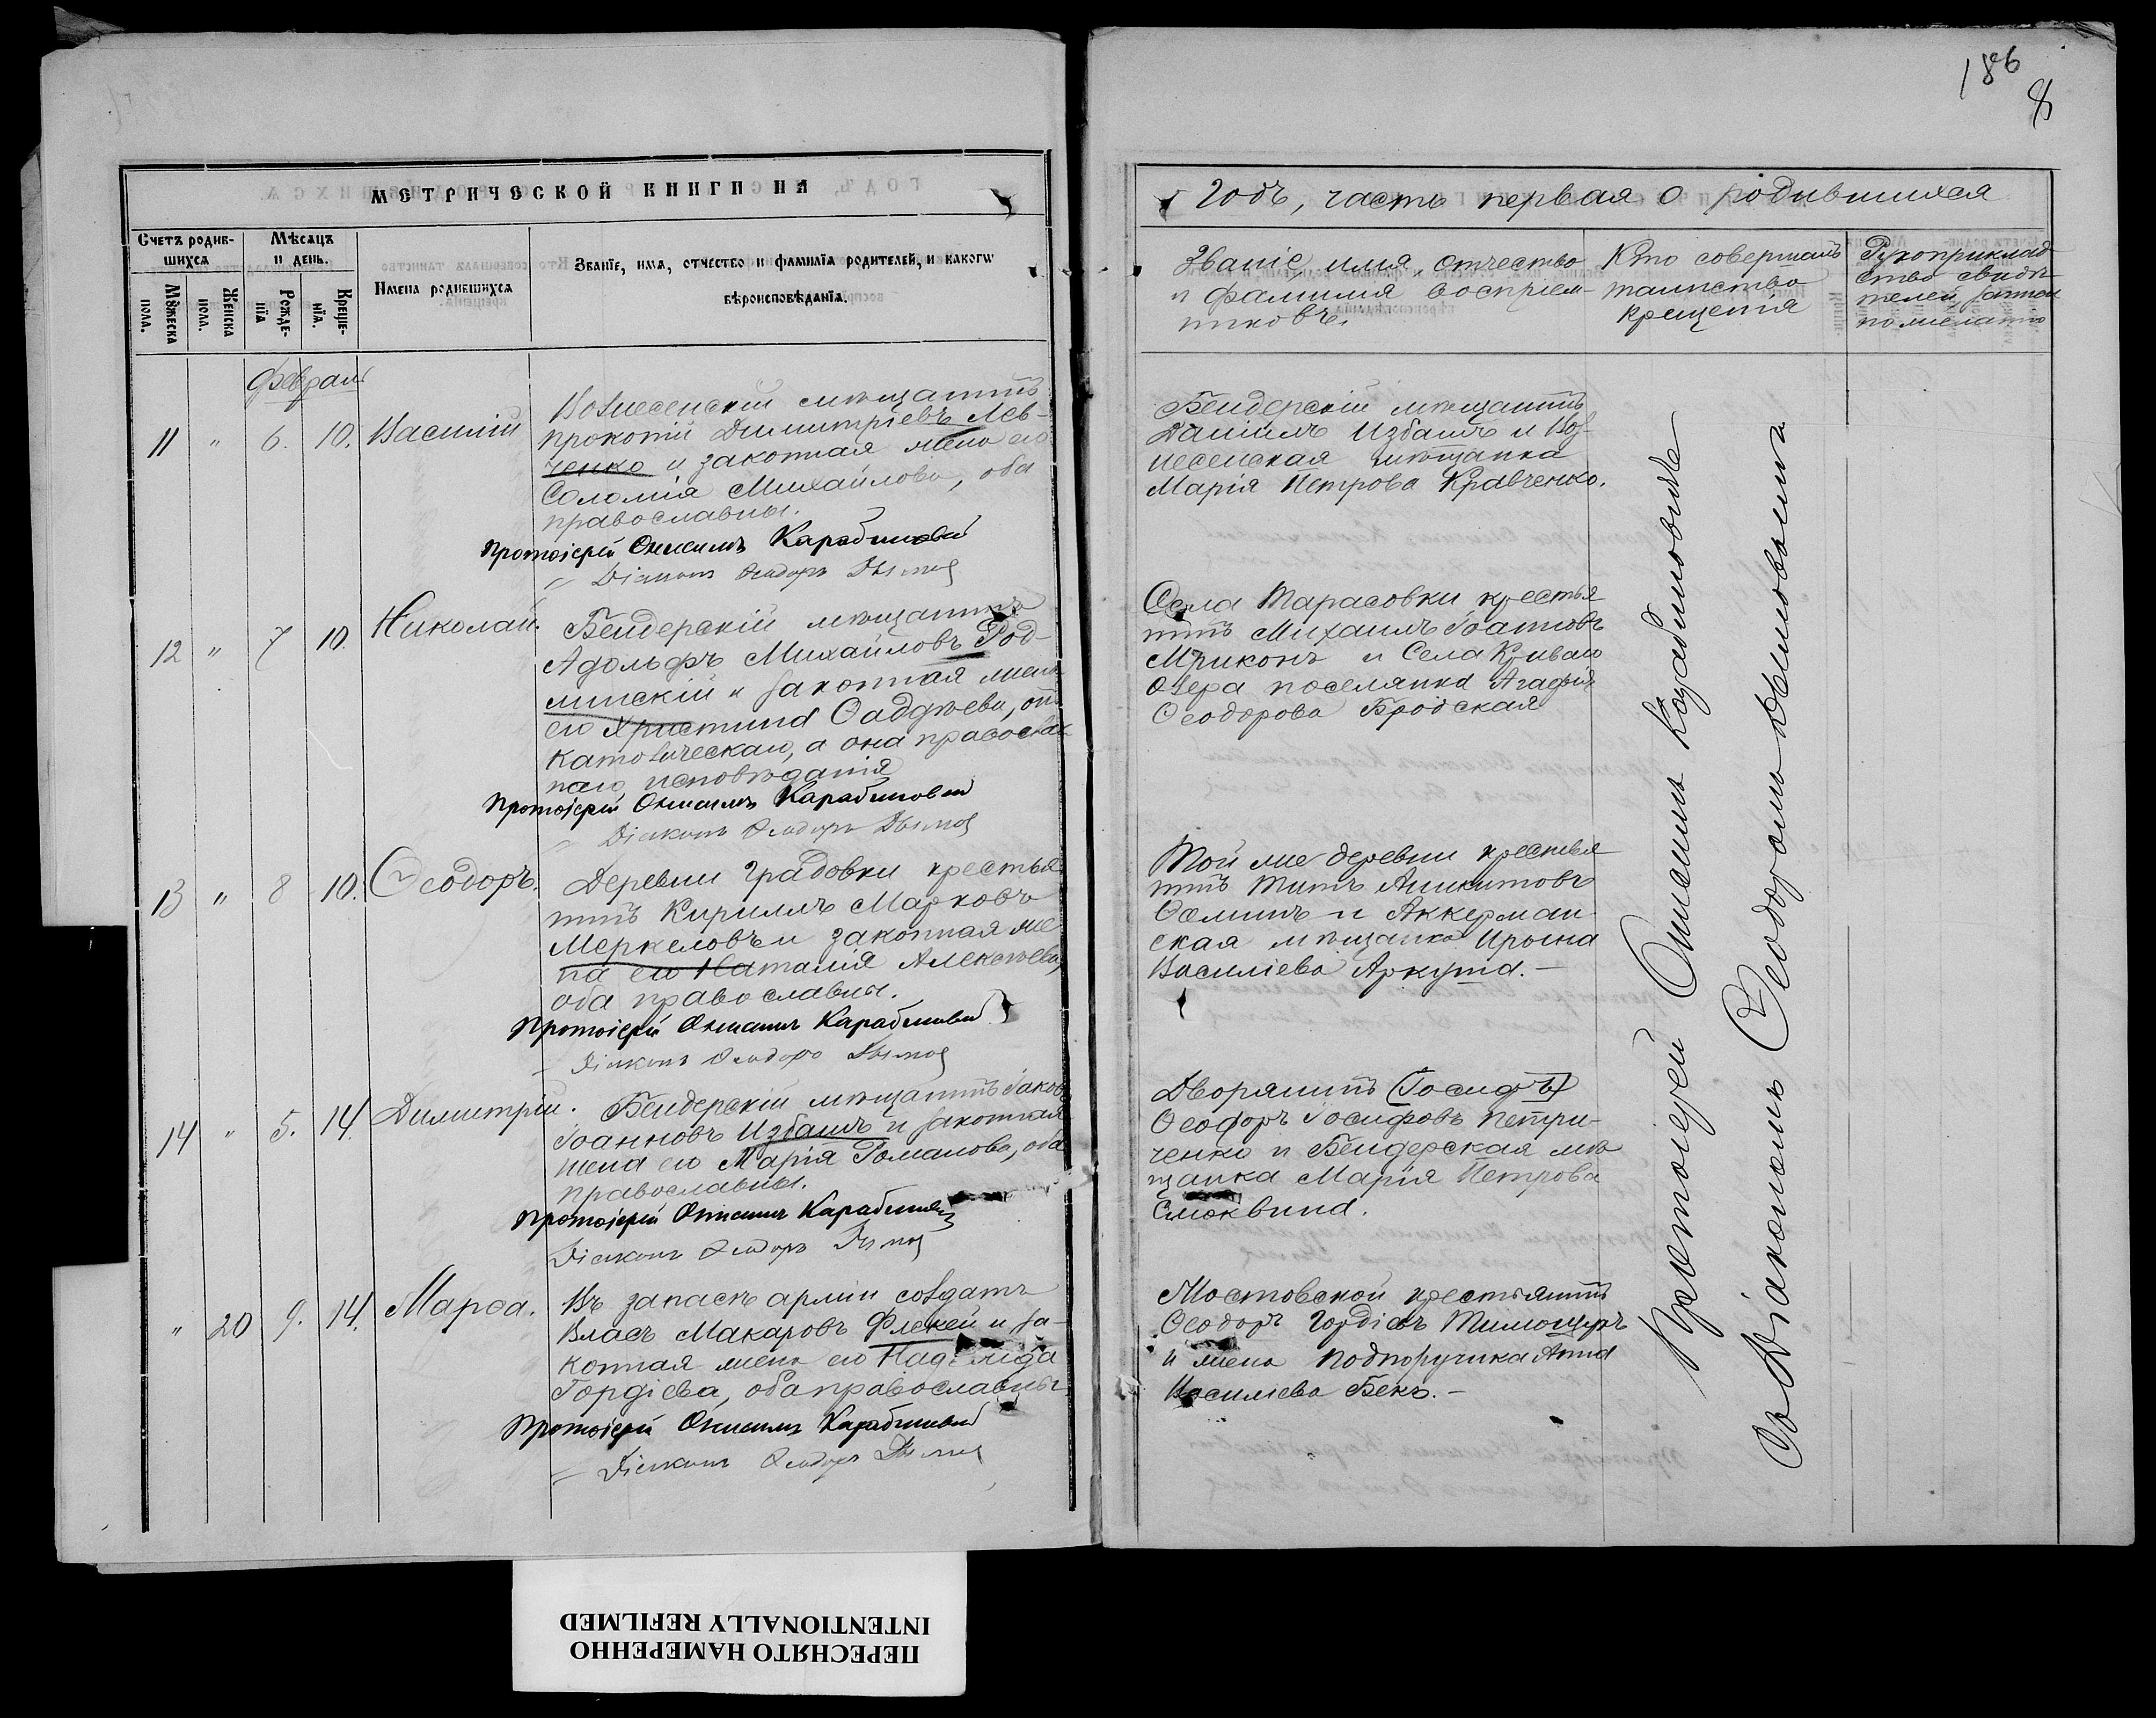 МЕТРИЧЕСКОЙ КНИГИ НА
Счетъ родив-
шихся
Мѣсяцъ
и день.
Имена родившихся
Званїе, имѧ, отчество и фамилїѧ родителей, и какогѡ
вѣроисповѣданїѧ.
Мꙋжеска
пола.
Женска
пола.
Рожде-
нїѧ
Креще-
нїѧ.
Февраль
11 " 6. 10. Василій
Вознесенскій мѣщанинъ
Прокопій Димитріевъ Лев-
ченко и законная жена его
Соломія Михайлова, оба
православны.
Протоіерей Онисимъ Карабиновичъ
Діаконъ Ѳеодоръ
12 " 7 10. Николай.
Бендерскій мѣщанинъ
Адольфъ Михайловъ Род-
линскій и законная жена
его Христина Ѳаддѣева, онъ
католическаго, а она православ-
наго исповѣданія
Протоіерей Онисимъ Карабиновичъ
Діаконъ Ѳеодоръ
13 " 8 10. Ѳеодоръ.
Деревни Градовки крестья-
нинъ Кириллъ Марковъ
Меркеловъ и законная же-
на его Наталія Алексѣева,
оба православны.
Протоіерей Онисимъ Карабиновичъ
Діаконъ Ѳеодоръ
14 " 5. 14. Димитрій.
Бендерскій мѣщанинъ Іаковъ
Іоанновъ Избашъ и законная
жена его Марія Романова, оба
православны.
Протоіерей Онисимъ Карабиновичъ
Діаконъ Ѳеодоръ
" 20 9. 14. Марѳа.
Въ запасѣ арміи солдатъ
Власъ Макаровъ Флекей и за-
конная жена его Надежда
Гордіева, оба православны.
Протоіерей Онисимъ Карабиновичъ
Діаконъ Ѳеодоръ
186
8
Годъ, часть первая о родившихся
Званіе, имя, отчество
и фамилія воспріем-
никовъ.
Кто совершалъ
таинство
крещенія
Рукоприклад-
ство свидѣ-
телей записи
по желанію
Бендерскій мѣщанинъ
Даніилъ Избашъ и Воз-
несенская мѣщанка
Марія Петрова Кравченко.
Села Тарасовки крестья-
нинъ Михаилъ Іоанновъ
Мриконъ и Села Криваго
Озера поселянка Агафія
Ѳеодорова Бродская
Той же деревни крестья-
нинъ Титъ Аникитовъ
Ѳоминъ и Аккерман-
ская мѣщанка Ирына
Василіева Аркуша.
Дворянинъ (Іосифъ)
Ѳеодоръ Іосифовъ Петри-
ченко и Бендерская мѣ-
щанка Марія Петрова
Смоквина.
Мостовской крестьянинъ
Ѳеодоръ Гордіевъ
и жена подпоручика Анна
Василіева Бекъ.
Протоіерей Онисимъ Карабиновичъ
съ Діакономъ Ѳеодоромъ
ПЕРЕСНЯТО НАМЕРЕННО
INTENTIONALLY REFILMED